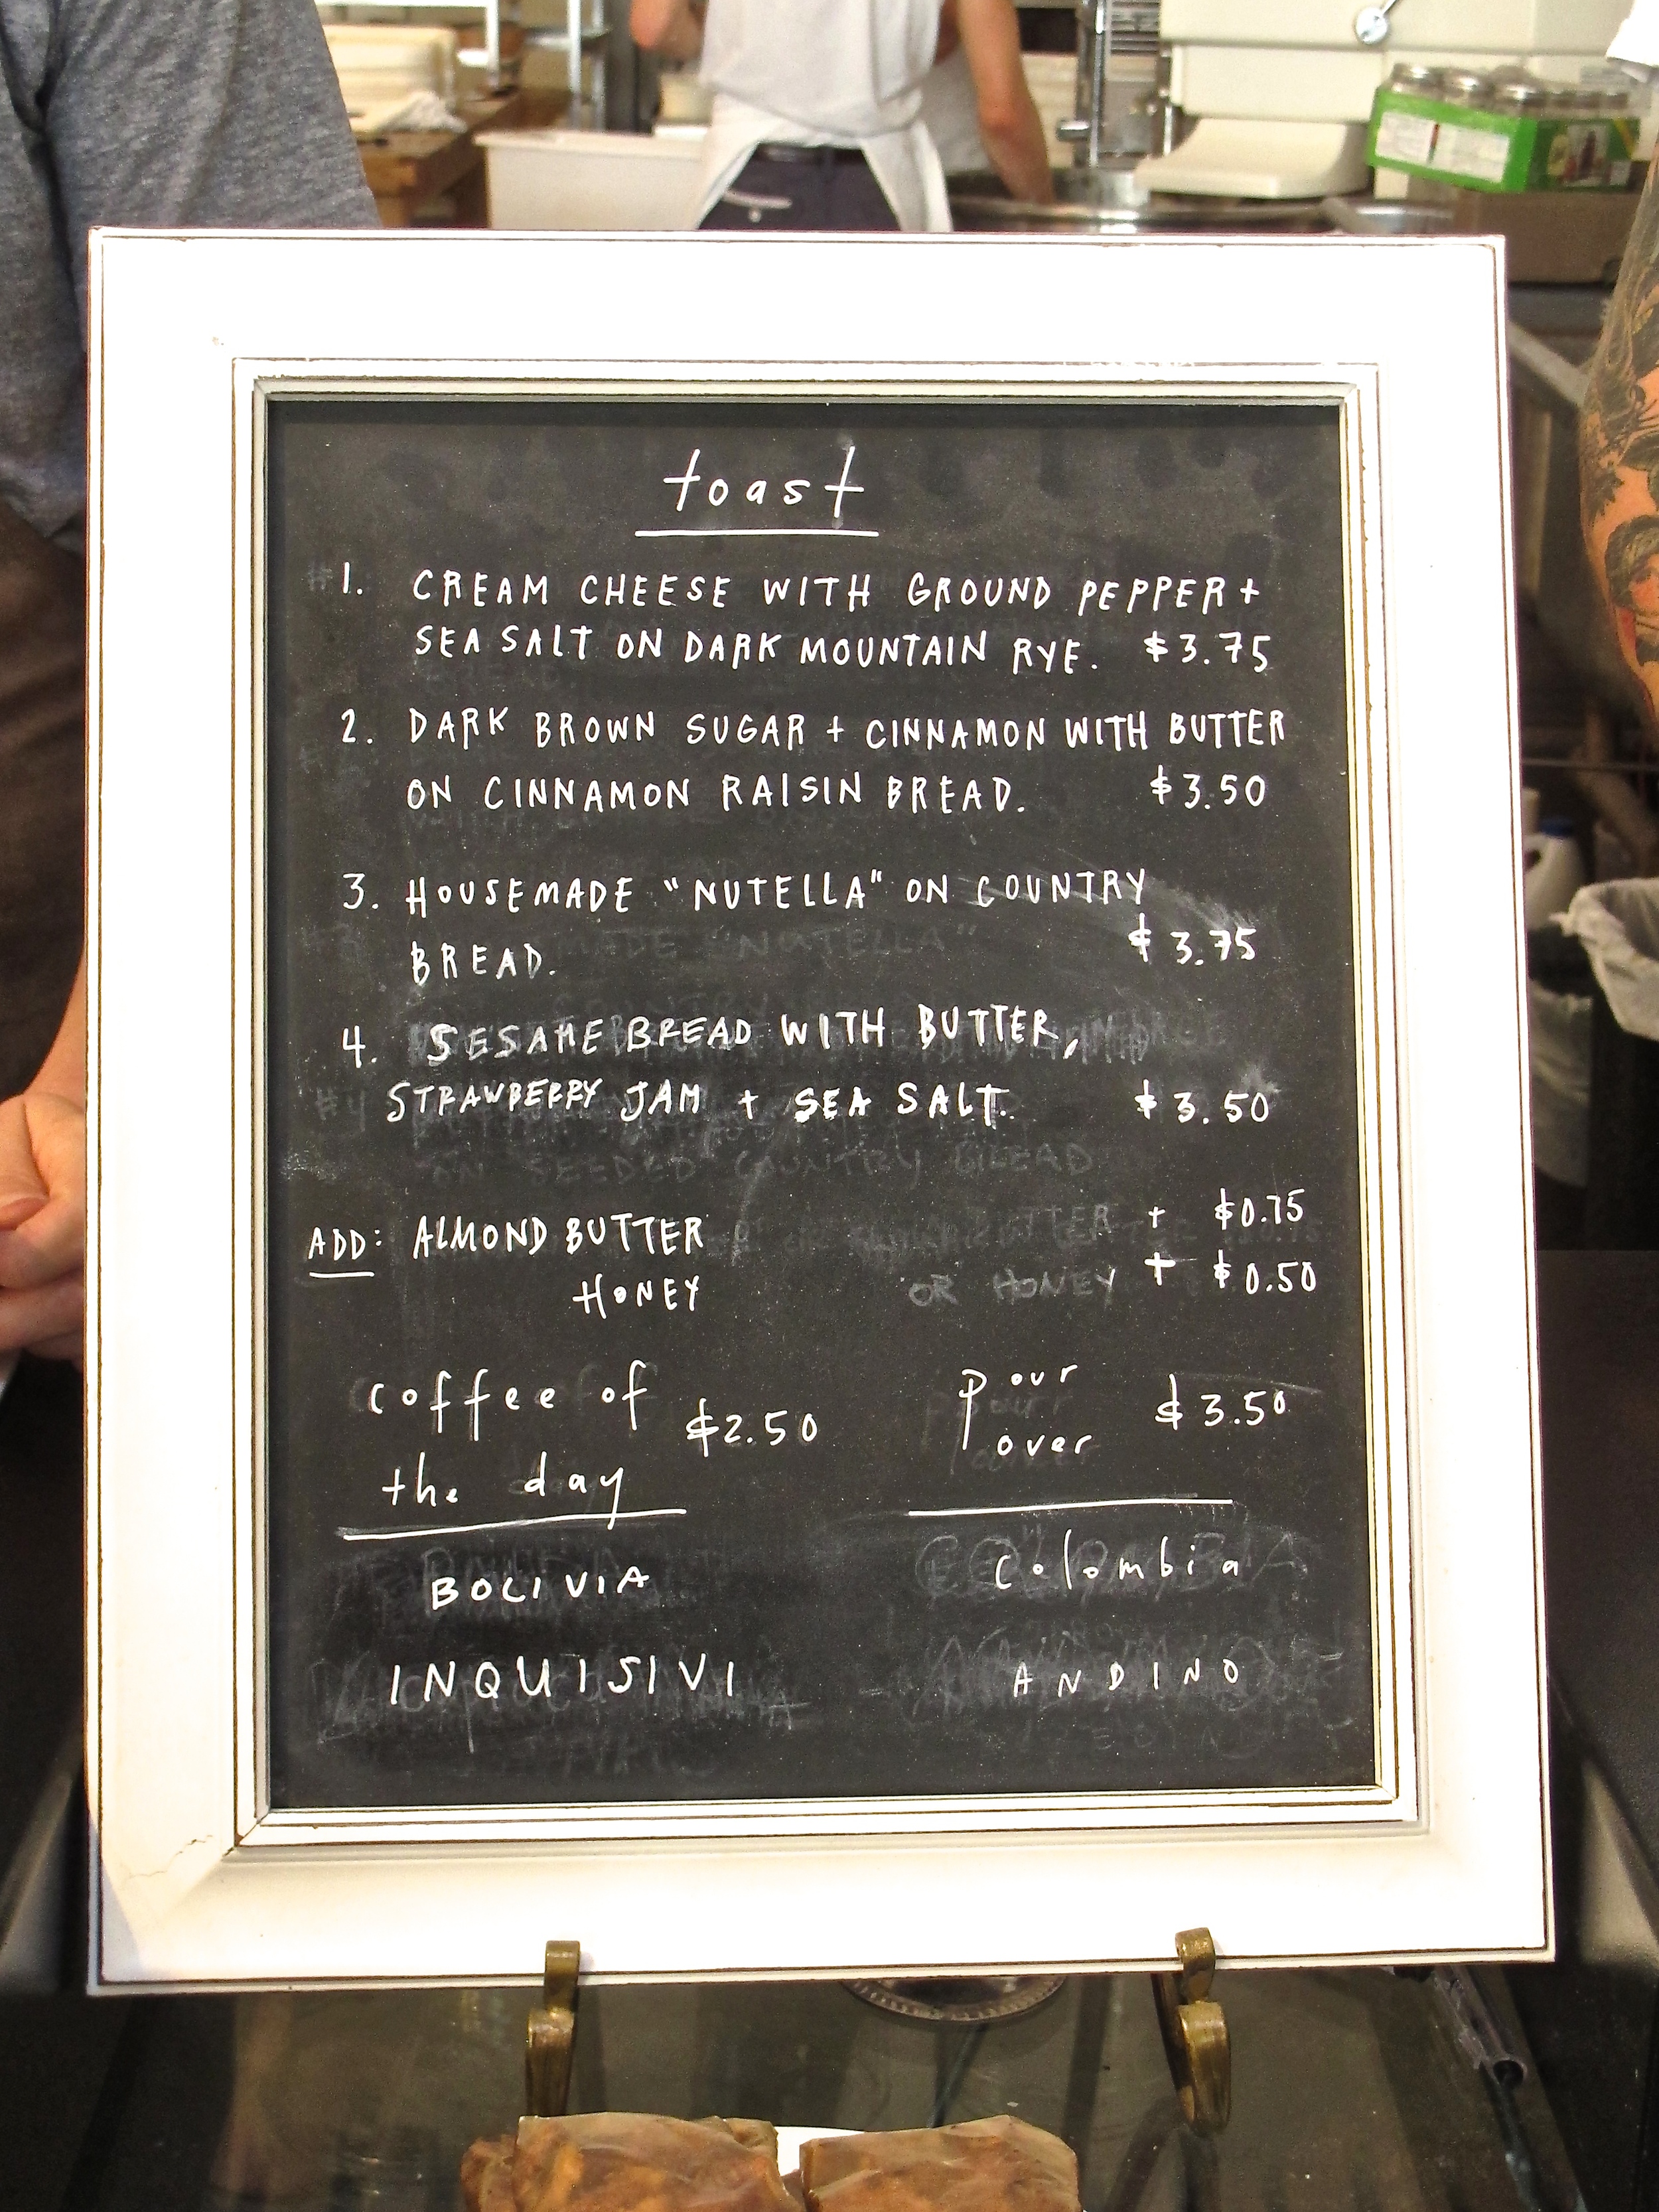 toast
1. CREAM CHEESE WITH GROUND PEPPER +
SEA SALT ON DARK MOUNTAIN RYE. $3.75
2. DARK BROWN SUGAR + CINNAMON WITH BUTTER
ON CINNAMON RAISIN BREAD. $3.50
3. HOUSEMADE "NUTELLA" ON COUNTRY
BREAD. $3.75
4. SESAME BREAD WITH BUTTER,
STRAWBERRY JAM + SEA SALT. $3.50
ADD: ALMOND BUTTER + $0.75
HONEY + $0.50
coffee of
the day $2.50
BOLIVIA
INQUISIVI
pour
over $3.50
Colombia
ANDINO